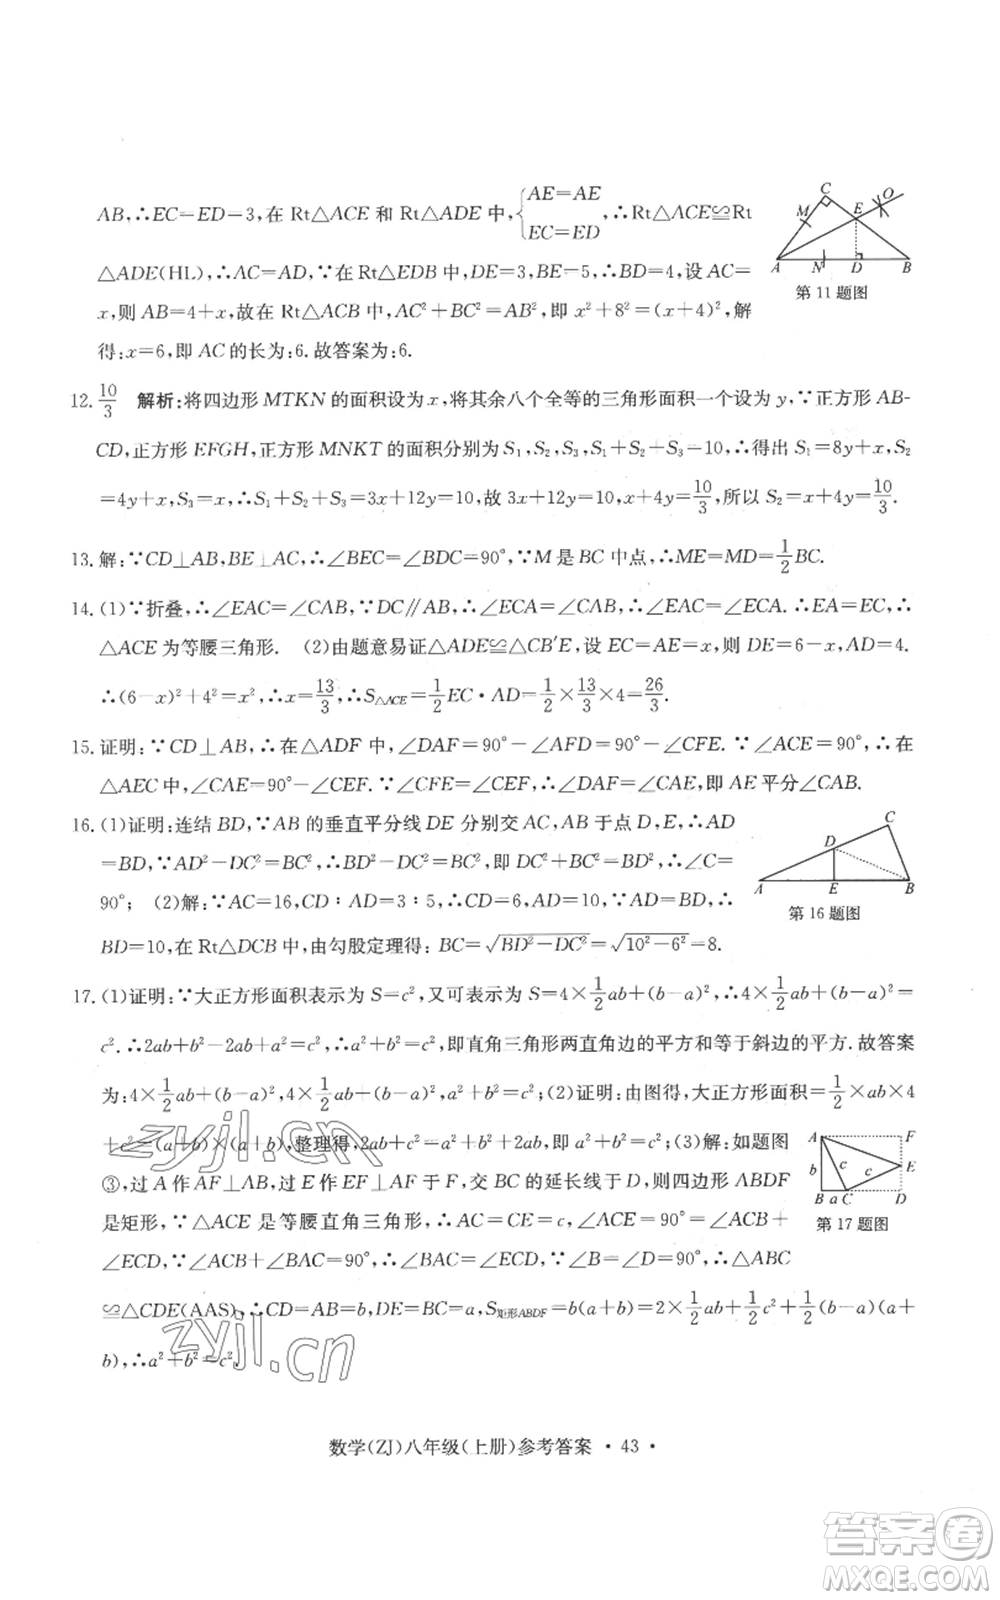 AB,∴EC=ED=3,在 Rt△ACE 和 Rt△ADE 中,{AE=AE EC=ED,∴Rt△ACE≌Rt
△ADE(HL),∴AC=AD,∵在 Rt△EDB 中,DE=3,BE=5,∴BD=4,设 AC=
x,则 AB=4+x,故在 Rt△ACB 中,AC²+BC²=AB²,即 x²+8²=(x+4)²,解
得:x=6,即 AC 的长为:6.故答案为:6.
C
M
E
O
A
N
D
B
第 11 题图
12. 10/3 解析:将四边形 MTKN 的面积设为 x,将其余八个全等的三角形面积一个设为 y,∵正方形 AB-
CD,正方形 EFGH,正方形 MNKT 的面积分别为 S₁,S₂,S₃,S₁+S₂+S₃=10,∴得出 S₁=8y+x,S₂
=4y+x,S₃=x,∴S₁+S₂+S₃=3x+12y=10,故 3x+12y=10,x+4y=10/3,所以 S₂=x+4y=10/3.
13.解:∵CD⊥AB,BE⊥AC,∴∠BEC=∠BDC=90°,∵M 是 BC 中点,∴ME=MD=1/2BC.
14.(1)∵折叠,∴∠EAC=∠CAB,∵DC∥AB,∴∠ECA=∠CAB,∴∠EAC=∠ECA.∴EA=EC,∴
△ACE 为等腰三角形. (2)由题意易证△ADE≌△CB′E,设 EC=AE=x,则 DE=6-x,AD=4.
∴(6-x)²+4²=x²,∴x=13/3,∴S△ACE=1/2EC·AD=1/2×13/3×4=26/3.
15.证明:∵CD⊥AB,∴在△ADF 中,∠DAF=90°-∠AFD=90°-∠CFE.∵∠ACE=90°,∴在
△AEC 中,∠CAE=90°-∠CEF.∵∠CFE=∠CEF,∴∠DAF=∠CAE,即 AE 平分∠CAB.
16.(1)证明:连结 BD,∵AB 的垂直平分线 DE 分别交 AC,AB 于点 D,E,∴AD
=BD,∵AD²-DC²=BC²,∴BD²-DC²=BC²,即 DC²+BC²=BD²,∴∠C=
90°; (2)解:∵AC=16,CD∶AD=3∶5,∴CD=6,AD=10,∵AD=BD,∴
BD=10,在 Rt△DCB 中,由勾股定理得:BC=√(BD²-DC²)=√(10²-6²)=8.
C
D
A
E
B
第 16 题图
17.(1)证明:∵大正方形面积表示为 S=c²,又可表示为 S=4×1/2ab+(b-a)²,∴4×1/2ab+(b-a)²=
c².∴2ab+b²-2ab+a²=c²,∴a²+b²=c²,即直角三角形两直角边的平方和等于斜边的平方.故答案
为:4×1/2ab+(b-a)²,4×1/2ab+(b-a)²,a²+b²=c²;(2)证明:由图得,大正方形面积=1/2×ab×4
+c²=(a+b)×(a+b),整理得,2ab+c²=a²+b²+2ab,即 a²+b²=c²;(3)解:如题图
③,过 A 作 AF⊥AB,过 E 作 EF⊥AF 于 F,交 BC 的延长线于 D,则四边形 ABDF
是矩形,∵△ACE 是等腰直角三角形,∴AC=CE=c,∠ACE=90°=∠ACB+
∠ECD,∵∠ACB+∠BAC=90°,∴∠BAC=∠ECD,∵∠B=∠D=90°,∴△ABC
≌△CDE(AAS),∴CD=AB=b,DE=BC=a,S矩形ABDF=b(a+b)=2×1/2ab+1/2c²+1/2(b-a)(a+
b),∴a²+b²=c².
A
F
b
c
c
E
B
a
C
D
第 17 题图
zyjl.cn
zyjl.cn
数学(ZJ)八年级(上册)参考答案 · 43 ·
答案卷
MXQE.COM